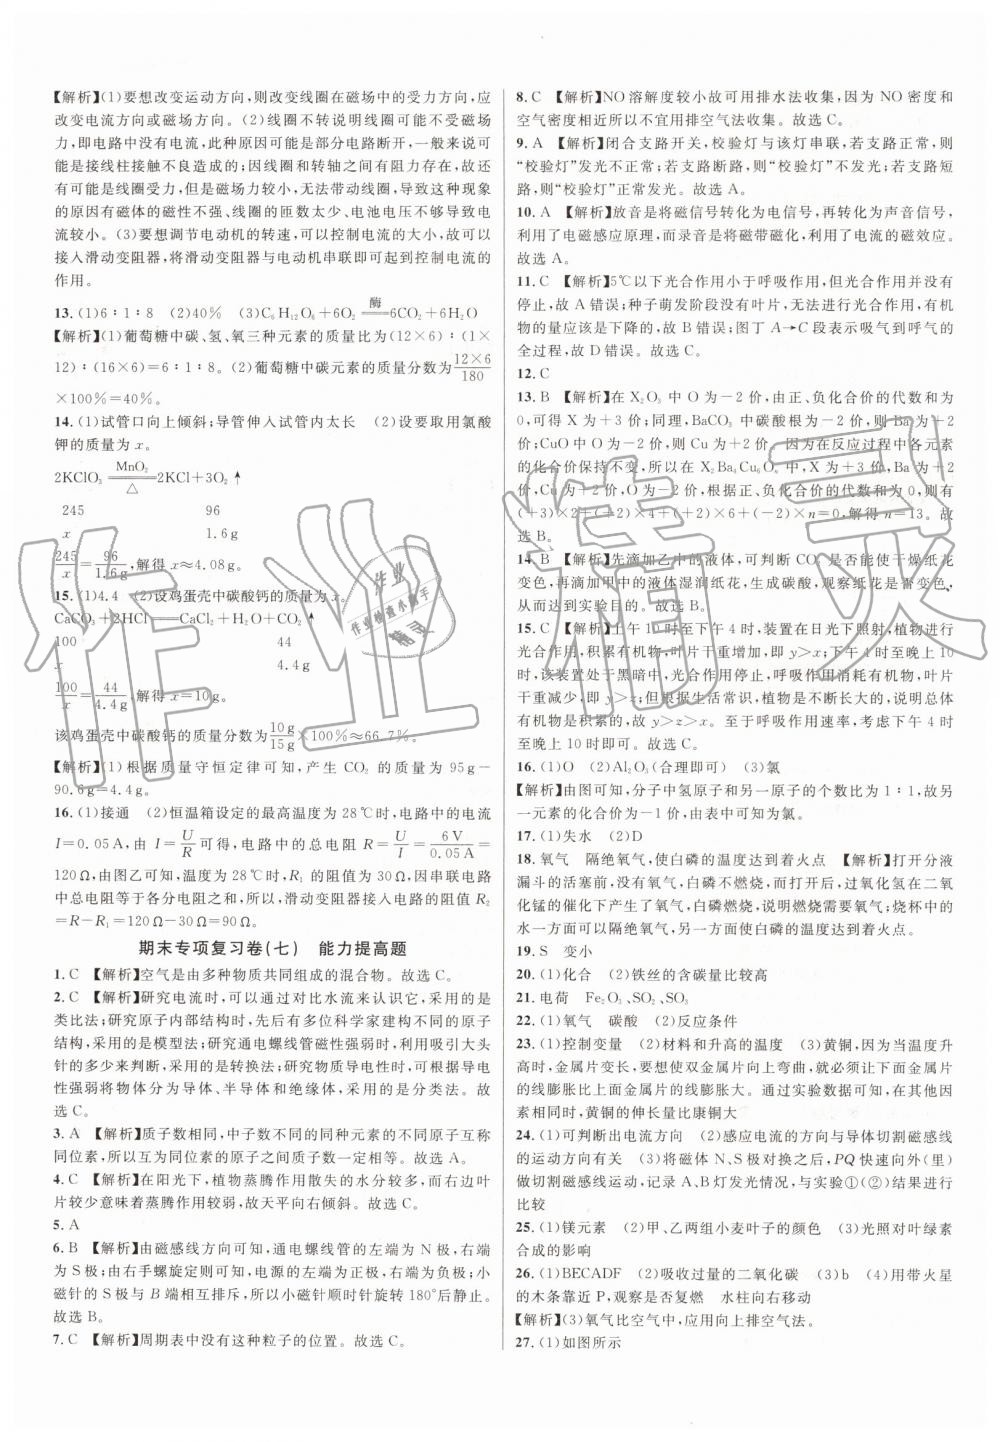 【解析】(1)要想改变运动方向,则改变线圈在磁场中的受力方向,应
改变电流方向或磁场方向。(2)线圈不转说明线圈可能不受磁场
力,即电路中没有电流,此种原因可能是部分电路断开,一般来说可
能是接线柱接触不良造成的;因线圈和转轴之间有阻力存在,因此
线圈可能受力,但是磁场力较小,无法带动线圈,导致这种现象
的原因有磁体的磁性不强、线圈的匝数太少、电池电压不够导致电
流较小。(3)要想调节电动机的转速,可以控制电流的大小,故可以
接入滑动变阻器,将滑动变阻器与电动机串联即可起到控制电流的
作用。
13. (1)6∶1∶8 (2)40% (3)C₆H₁₂O₆+6O₂ 酶═ 6CO₂+6H₂O
【解析】(1)葡萄糖中碳、氢、氧三种元素的质量比为(12×6)∶(1×
12)∶(16×6)=6∶1∶8。(2)葡萄糖中碳元素的质量分数为12×6/180
×100%=40%。
14. (1)试管口向上倾斜;导管伸入试管内太长 (2)设要取用氯酸
钾的质量为x。
2KClO₃ MnO₂═△ 2KCl+3O₂↑
245 96
x 1.6g
245/x=96/1.6g,解得x≈4.08g。
15. (1)4.4 (2)设鸡蛋壳中碳酸钙的质量为x。
CaCO₃+2HCl═CaCl₂+H₂O+CO₂↑
100 44
x 4.4g
100/x=44/4.4g,解得x=10g。
该鸡蛋壳中碳酸钙的质量分数为10g/15g×100%≈66.7%。
【解析】(1)根据质量守恒定律可知,产生CO₂的质量为95g-
90.6g=4.4g。
16. (1)接通 (2)恒温箱设定的最高温度为28℃时,电路中的电流
I=0.05A,由I=U/R可得,电路中的总电阻R=U/I=6V/0.05A=
120Ω,由图乙可知,温度为28℃时,R₁的阻值为30Ω,因串联电路
中总电阻等于各分电阻之和,所以,滑动变阻器接入电路的阻值R₂
=R-R₁=120Ω-30Ω=90Ω。
期末专项复习卷(七) 能力提高题
1. C 【解析】空气是由多种物质共同组成的混合物。故选C。
2. C 【解析】研究电流时,可以通过对比水流来认识它,采用的是
类比法;研究原子内部结构时,先后有多位科学家建构不同的原子
结构,采用的是模型法;研究通电螺线管磁性强弱时,利用吸引大头
针的多少来判断,采用的是转换法;研究物质导电性时,可根据导电
性强弱将物体分为导体、半导体和绝缘体,采用的是分类法。故
选C。
3. A 【解析】质子数相同,中子数不同的同种元素的不同原子互称
同位素,所以互为同位素的原子之间质子数一定相等。故选A。
4. C 【解析】在阳光下,植物蒸腾作用散失的水分较多,而右边叶
片较少意味着蒸腾作用较弱,故天平向右倾斜。故选C。
5. A
6. B 【解析】由磁感线方向可知,通电螺线管的左端为N极,右端
为S极;由右手螺旋定则可知,电源的左端为正极,右端为负极;小
磁针的S极与B端为同名磁极相互排斥,所以小磁针顺时针旋转180°后静止。
故选B。
7. C 【解析】周期表中没有这种粒子的位置。故选C。
8. C 【解析】NO溶解度较小故可用排水法收集,因为NO密度和
空气密度相近所以不宜用排空气法收集。故选C。
9. A 【解析】闭合支路开关,校验灯与该灯串联,若支路正常,则
“校验灯”会发光,但不能正常发光;若支路断路,则“校验灯”不发光;若支路短
路,则“校验灯”正常发光。故选A。
10. A 【解析】放音是将磁信号转化为电信号,再转化为声音信号,
利用了电磁感应原理,而录音是将磁带磁化,利用了电流的磁效应。
故选A。
11. C 【解析】5℃以下光合作用小于呼吸作用,但光合作用并没有
停止,故A错误;种子萌发阶段没有叶片,无法进行光合作用,有机
物的量应该是下降的,故B错误;图丁A→C段表示吸气到呼气的
全过程,故D错误。故选C。
12. C
13. B 【解析】在X₂O₃中O为-2价,由正、负化合价的代数和为
0,可得X为+3价;同理,BaCO₃中碳酸根为-2价,则Ba为+2
价;CuO中O为-2价,则Cu为+2价,因为在反应过程中各元素
的化合价保持不变,所以在X₂Ba₄Cu₆Oₙ中,X为+3价,Ba为+2
价,Cu为+2价,O为-2价,根据正、负化合价的代数和为0,则有
(+3)×2+(+2)×4+(+2)×6+(-2)×n=0,解得n=13。故
选B。
14. B 【解析】先滴加乙中的液体,可判断CO₂是否能使干燥纸花
变色,再滴加甲中的液体湿润纸花,生成碳酸,观察纸花是否变色,
从而达到实验目的。故选B。
15. C 【解析】上午10时至下午4时,装置在日光下照射,植物进行
光合作用,积累有机物,叶片干重不断增加,即y>x;下午4时至晚上10
时,该装置处于黑暗中,光合作用停止,呼吸作用消耗有机物,叶片
干重减少,即y>z;但根据生活常识,植物是不断长大的,说明总体
有机物是积累的,故y>z>x。至于呼吸作用速率,考虑下午4时
至晚上10时即可。故选C。
16. (1)O (2)Al₂O₃(合理即可) (3)氯
【解析】由图可知,分子中氢原子和另一原子的个数比为1∶1,故另
一元素的化合价为-1价,由表可知为氯。
17. (1)失水 (2)D
18. 氧气 隔绝氧气,使白磷的温度达到着火点 【解析】打开分液
漏斗的活塞前,没有氧气,白磷不燃烧,而打开后,过氧化氢在二氧
化锰的催化下产生了氧气,白磷燃烧,说明燃烧需要氧气;烧杯中的
水一方面可以隔绝氧气,另一方面使白磷的温度达到着火点。
19. S 变小
20. (1)化合 (2)铁丝的含碳量比较高
21. 电荷 Fe₂O₃、SO₂、SO₃
22. (1)氧气 碳酸 (2)反应条件
23. (1)控制变量 (2)材料和升高的温度 (3)黄铜,因为当温度升
高时,金属片变长,要想使双金属片向上弯曲,就必须让下面金属片
的线膨胀比上面金属片的线膨胀大。通过实验数据可知,在其他因
素相同时,黄铜的伸长量比康铜大
24. (1)可判断出电流方向 (2)感应电流的方向与导体切割磁感线
的运动方向有关 (3)将磁体N、S极对换之后,PQ快速向外(里)
做切割磁感线运动,记录A、B灯发光情况,与实验①(②)结果进行
比较
25. (1)镁元素 (2)甲、乙两组小麦叶子的颜色 (3)光照对叶绿素
合成的影响
26. (1)BECADF (2)吸收过量的二氧化碳 (3)b (4)用带火星
的木条靠近P,观察是否复燃 水柱向右移动
【解析】(3)氧气比空气中,应用向上排空气法。
27. (1)如图所示